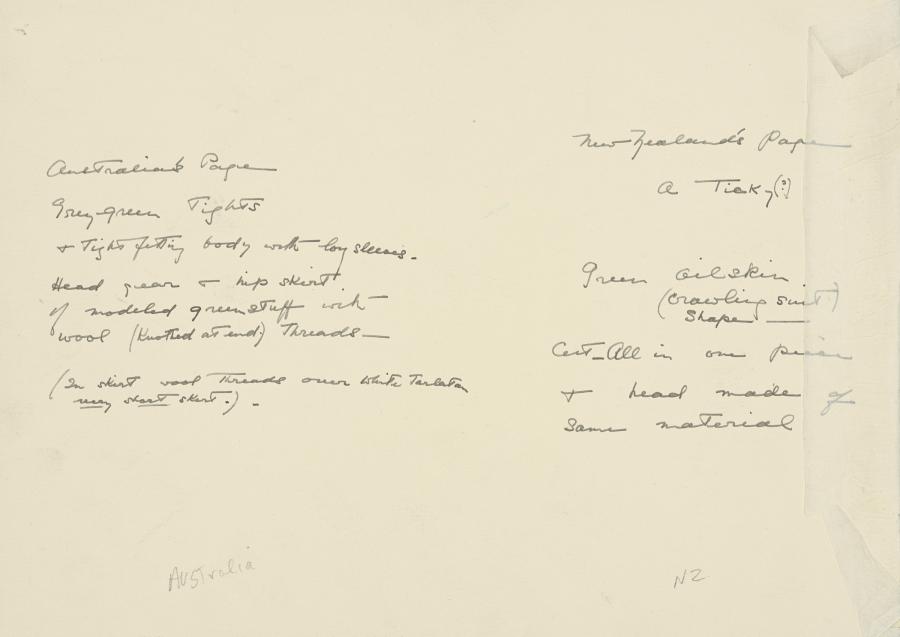 Australia's Page
Grey-green Tights
+ Tight fitting body with long sleeves.
Head gear + hip skirt
of modeled green stuff with
wool (Knotted at end) Threads —
(In skirt wool Threads over white Tarlatan
very short skirt.) -
Australia
New Zealand's Page
a Ticky(?)
Green oilskin
(crawling suit)
Shape —
Cut-All in one piece
+ head made of
same material
NZ